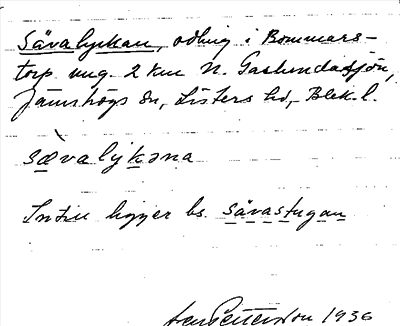 Sävalyckan, odling i Bommars-
torp ung. 2 km N. Gaslundasjön,
Jämshögs sn, Listers hd, Blek. l.
sævalykəna
Intill ligger bs. sävastugan
Pettersson 1936